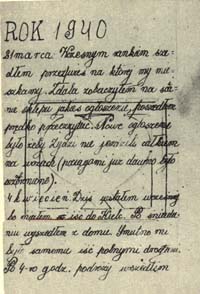 ROK 1940
21 marca Wczesnym rankiem sze-
dłem przez wieś na której my mie-
szkamy. Zdala zobaczyłem na ścia-
nie sklepu jakieś ogłoszenie, poszedłem
prędko przeczytać. Nowe ogłoszenie
było żeby Żydzi nie jeździli autkiem
na wozach (pociągami już dawno było
zabronione).
4 kwiecień. Dziś wstałem wcześniej
bo miałem iść do Kielc. Po śniada-
niu wyszedłem z domu. Smutno mi
było samemu iść polnymi drogami.
Po 4-ro godz. podróży weszłem